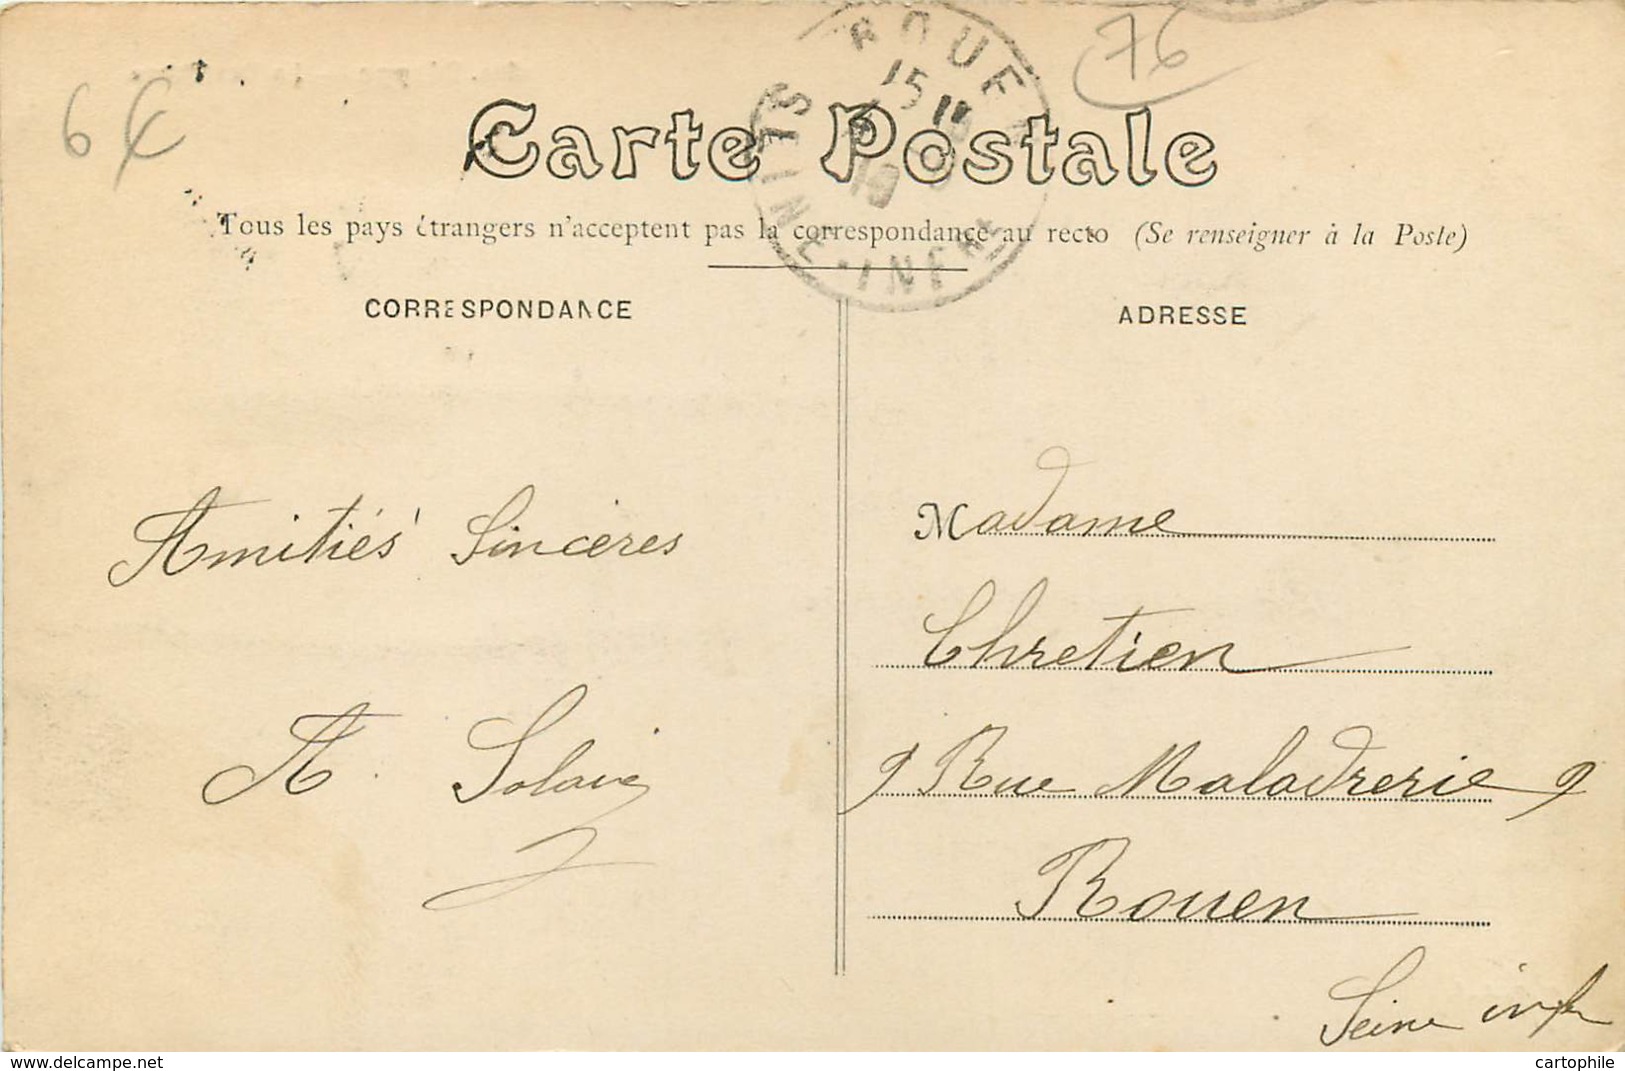 76
6 €
ROUEN
15
19
SEINE-INFRE
Carte Postale
Tous les pays étrangers n'acceptent pas la correspondance au recto (Se renseigner à la Poste)
CORRESPONDANCE
Amitiés Sincères
A.
ADRESSE
Madame
Chretien
9 Rue Maladrerie 9
Rouen
Seine infre
www.delcampe.net
cartophile